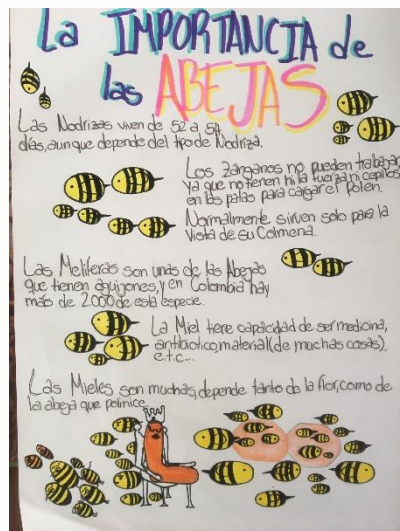 La IMPORTANCIA de
las ABEJAS
Las Nodrizas viven de 52 a 54
días, aunque depende del tipo de Nodriza.
Los Zánganos no pueden trabajar,
ya que no tienen ni la fuerza ni cepillos
en las patas para cargar el polen.
Normalmente sirven solo para la
vista de su Colmena.
Las Meliferas son unas de las Abejas
que tienen aguijones, y en Colombia hay
más de 2.000 de esta especie.
La Miel tiene capacidad de ser medicina,
antibiotico, material (de muchas cosas)
e.t.c...
Las Mieles son muchas, depende tanto de la flor, como de
la abeja que polinice.